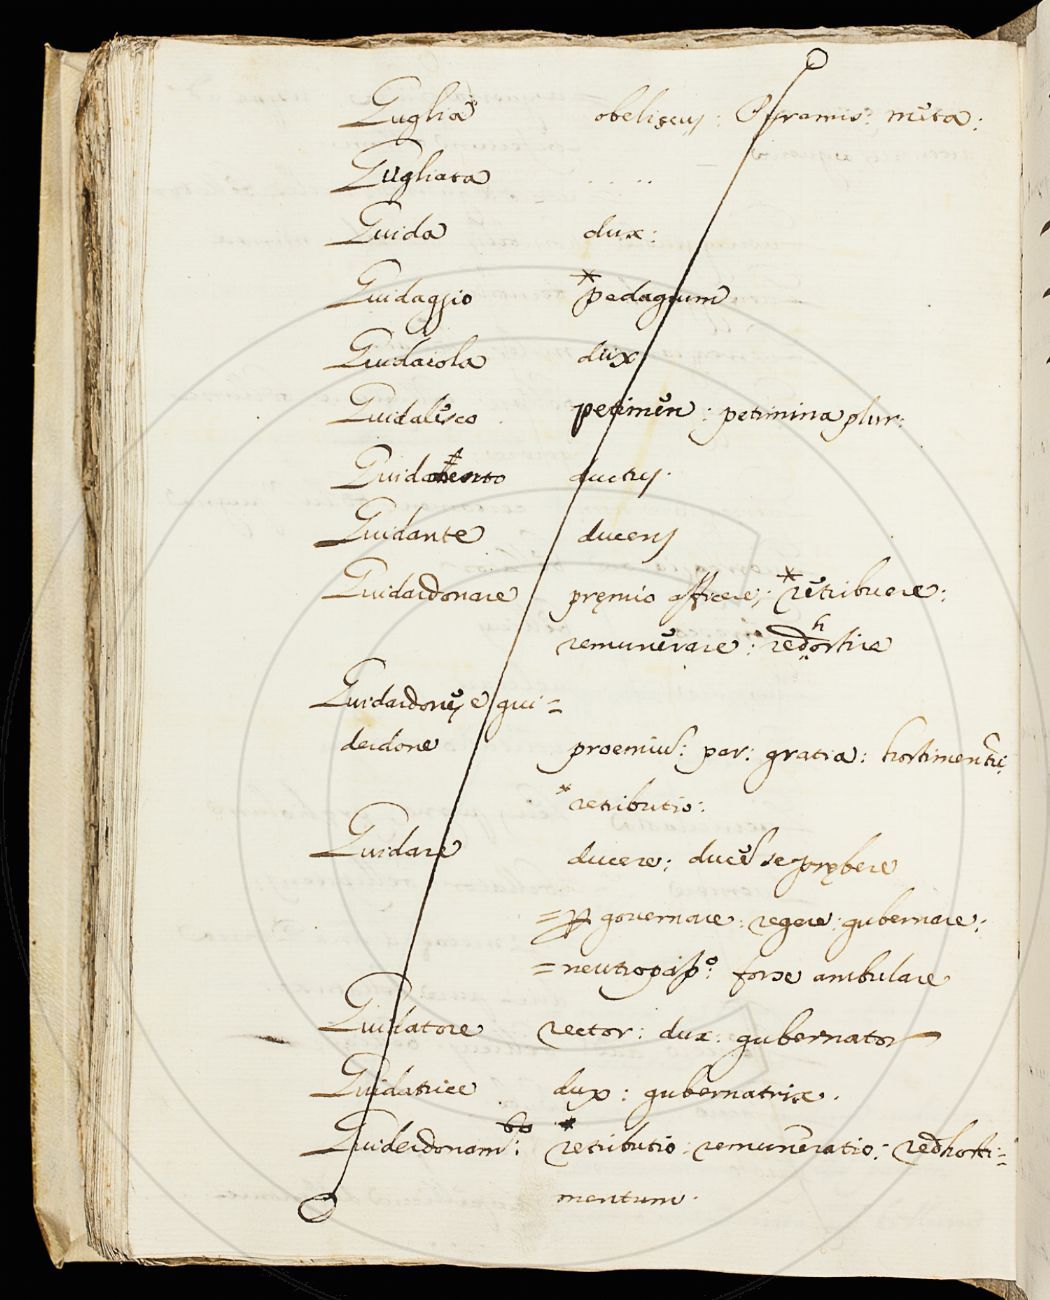 Guglia obeliscus: Piramis: meta:
Gugliata . . . .
Guida dux:
Guidaggio *pedagium
Guidaiola dux
Guidalesco petimen: petimina plur:
Guidamento ductus.
Guidante ducens
Guidardonare pręmio afficere: *retribuere:
remunerare: redhostire
Guidardone, e gui=
derdone proemium: par: gratia: hostimentum:
*retributio:
Guidare ducere: ducem se prębere
= governare: regere: gubernare:
=neutro pass.º forse ambulare
Guidatore rector: dux: gubernator
Guidatrice dux: gubernatrix.
Guiderdonamto: *retributio: remuneratio: redhosti=
mentum.